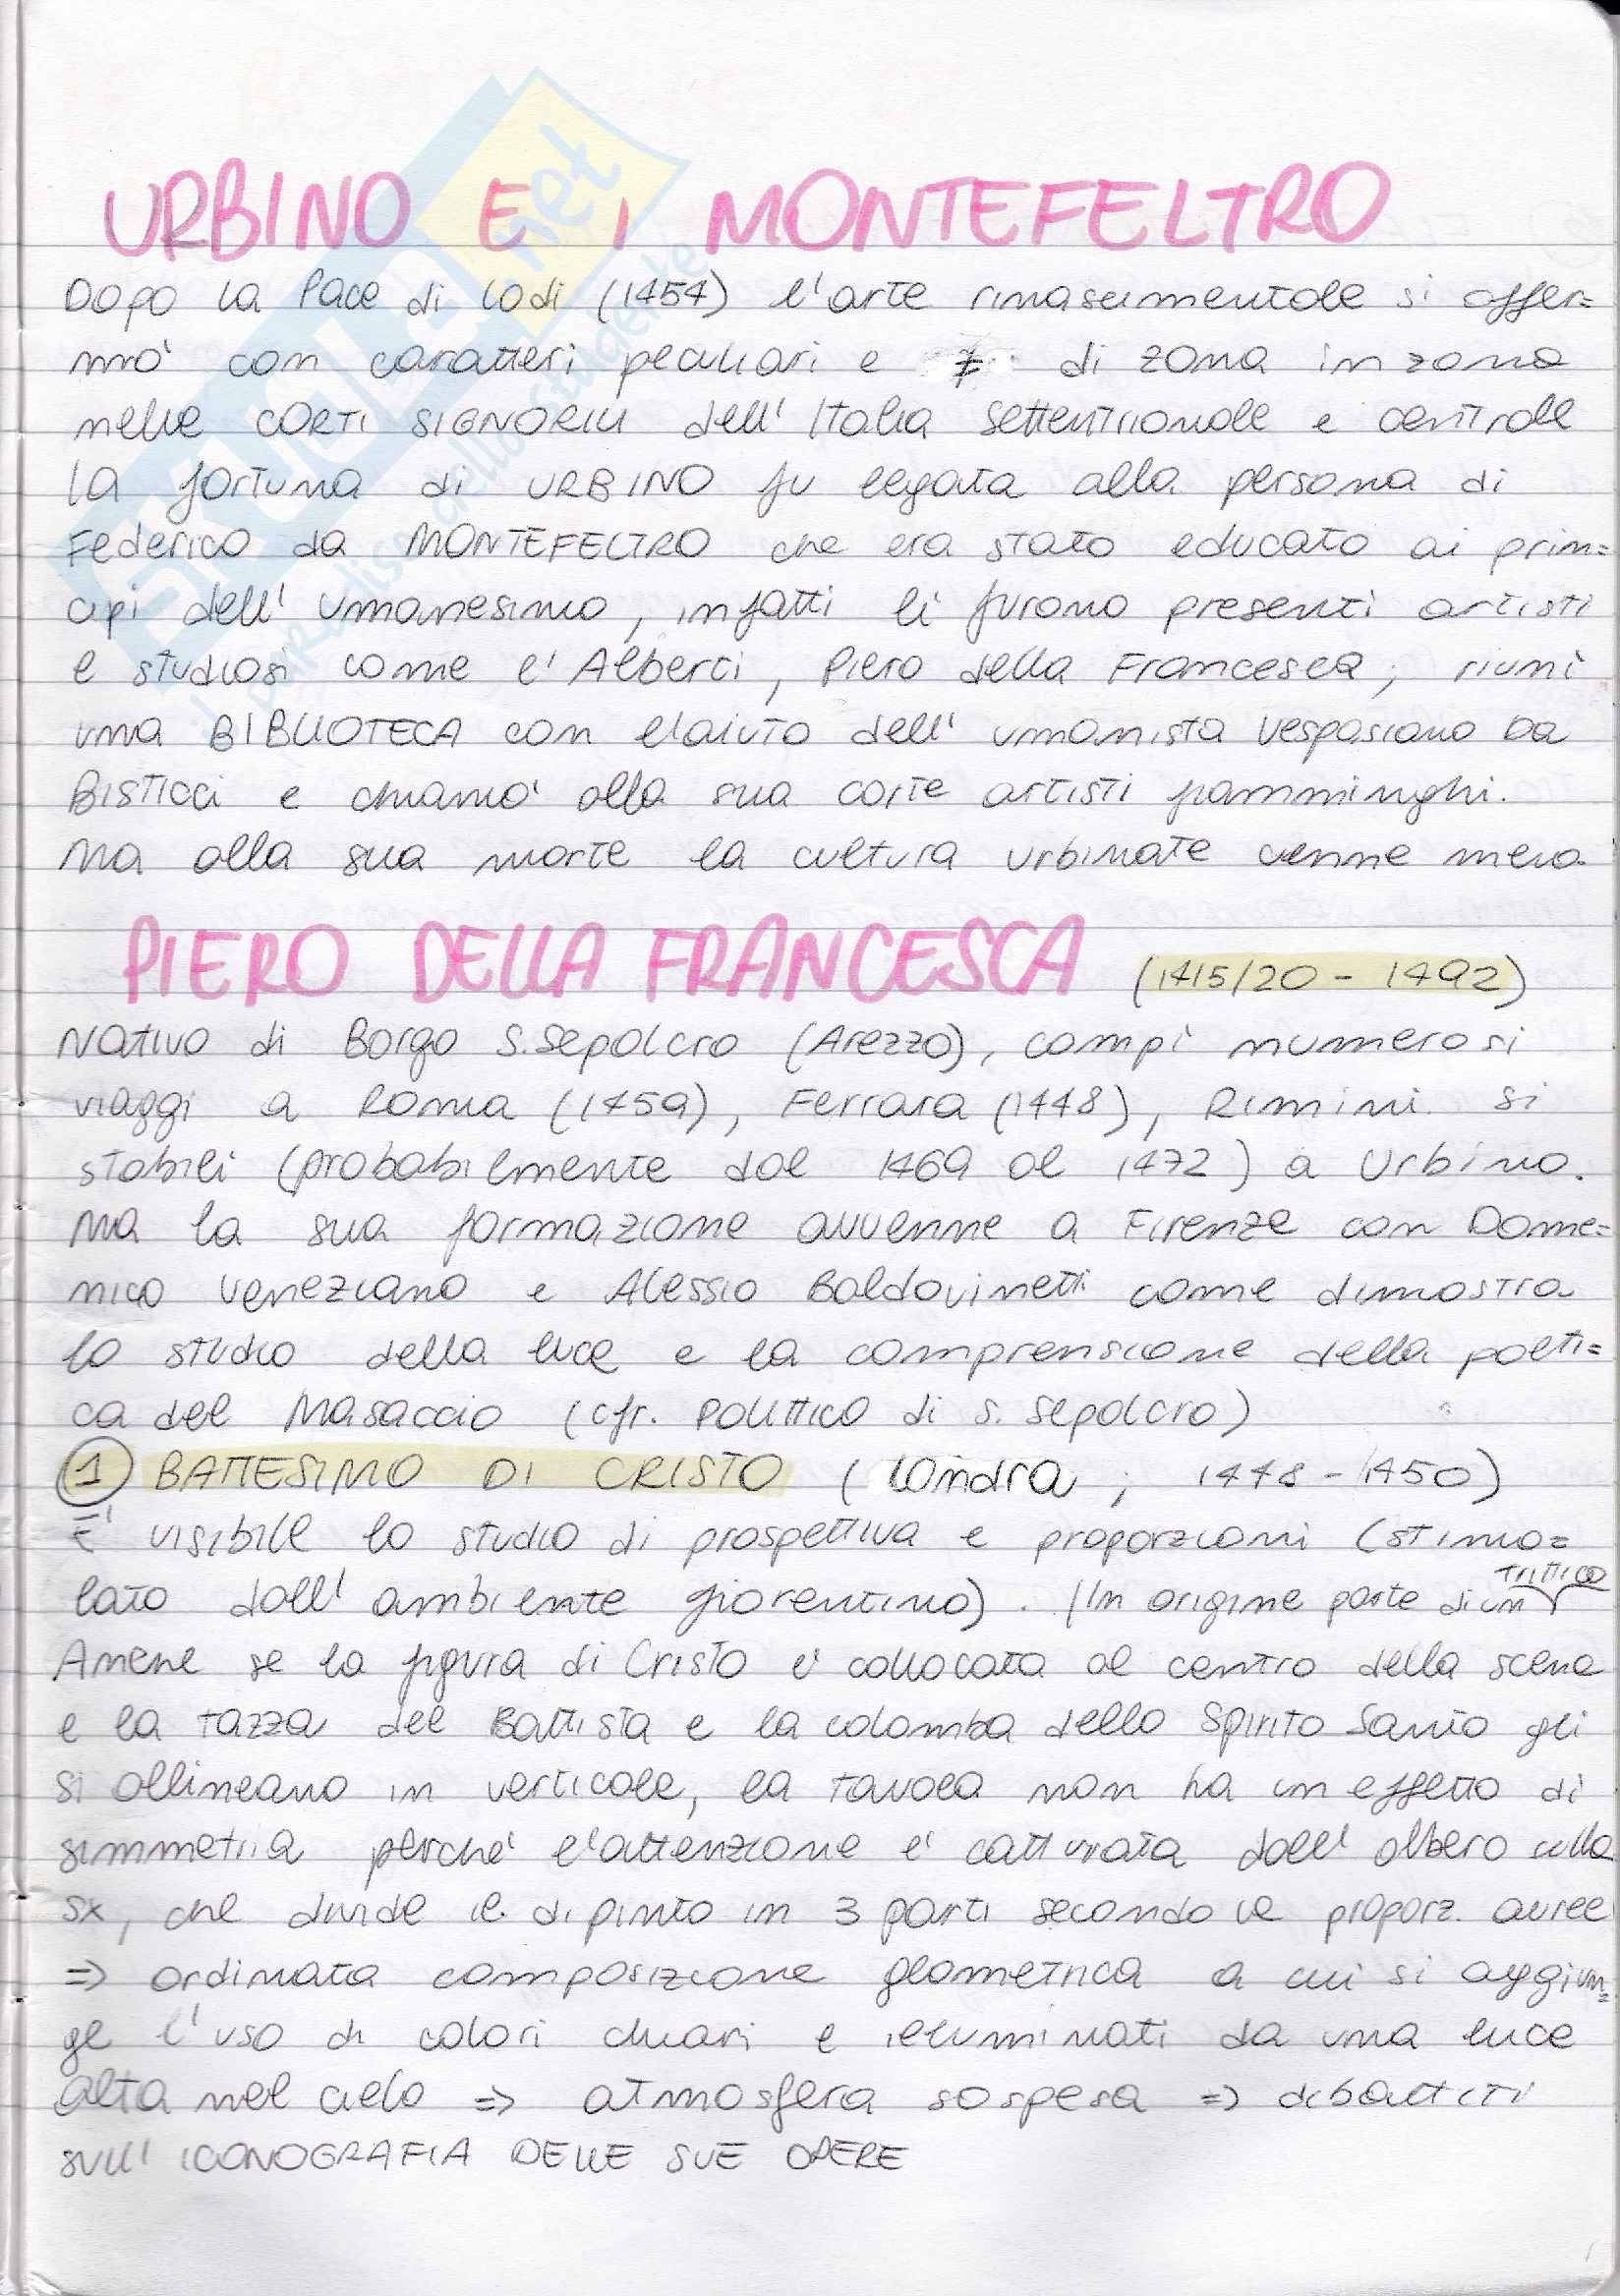 URBINO E I MONTEFELTRO
Dopo la Pace di Lodi (1454) l'arte rinascimentale si affer=
mò con caratteri peculiari e ≠ di zona in zona
nelle CORTI SIGNORILI dell'Italia settentrionale e centrale
La fortuna di URBINO fu legata alla persona di
Federico da MONTEFELTRO che era stato educato ai prin=
cipi dell'umanesimo, infatti lì furono presenti artisti
e studiosi come l'Alberti, Piero della Francesca; riunì
una BIBLIOTECA con l'aiuto dell'umanista Vespasiano Da
Bisticci e chiamò alla sua corte artisti fiamminghi.
Ma alla sua morte la cultura urbinate venne meno.
PIERO DELLA FRANCESCA (1415/20 - 1492)
Nativo di Borgo S. Sepolcro (Arezzo), compì numerosi
viaggi a Roma (1459), Ferrara (1448), Rimini. Si
stabilì (probabilmente dal 1469 al 1472) a Urbino.
Ma la sua formazione avvenne a Firenze con Dome=
nico Veneziano e Alessio Baldovinetti come dimostra
lo studio della luce e la comprensione della poeti=
ca del Masaccio (cfr. Polittico di S. Sepolcro)
1 BATTESIMO DI CRISTO (Londra; 1448-1450)
È visibile lo studio di prospettiva e proporzioni (stimo=
lato dall'ambiente fiorentino). (In origine parte di un trittico
Anche se la figura di Cristo è collocata al centro della scena
e la tazza del Battista e la colomba dello Spirito Santo gli
si allineano in verticale, la tavola non ha un effetto di
simmetria perché l'attenzione è catturata dall'albero sulla
sx, che divide il dipinto in 3 parti secondo le proporz. auree
=> ordinata composizione geometrica a cui si aggiun=
ge l'uso di colori chiari e illuminati da una luce
alta nel cielo => atmosfera sospesa => dibattiti
sull'ICONOGRAFIA DELLE SUE OPERE